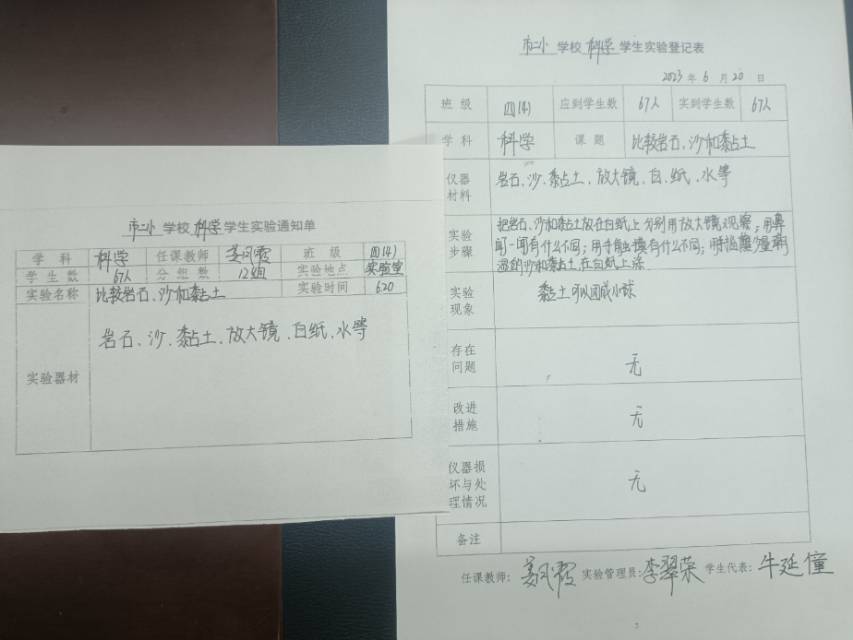 市二小 学校 科学 学生实验通知单
学科 科学 任课教师 姜风霞 班级 四(4)
学生数 67人 分组数 12组 实验地点 实验室
实验名称 比较岩石、沙和黏土 实验时间 6.20
实验器材 岩石、沙、黏土、放大镜、白纸、水等
市二小 学校 科学 学生实验登记表
2023年6月20日
班级 四(4) 应到学生数 67人 实到学生数 67人
学科 科学 课题 比较岩石、沙和黏土
仪器材料 岩石、沙、黏占土、放大镜、白、纸、水等
实验步骤 把岩石、沙和黏土放在白纸上分别用放大镜观察；用鼻
闻一闻有什么不同；用手触摸有什么不同；用手指蘸少量
湿的沙和黏土在白纸上涂
实验现象 黏土可以团成小球
存在问题 无
改进措施 无
仪器损坏与处理情况 无
备注
任课教师：姜风霞 实验管理员：李翠荣 学生代表：牛延僮